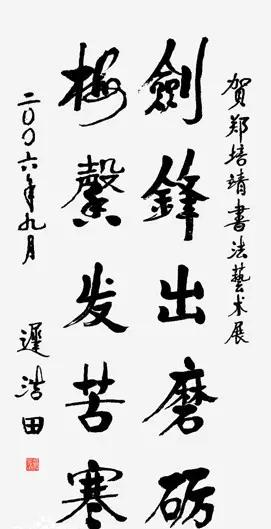 贺郑培靖书法艺术展
劍鋒出磨砺
梅馨发苦寒
二〇〇六年九月
遲浩田